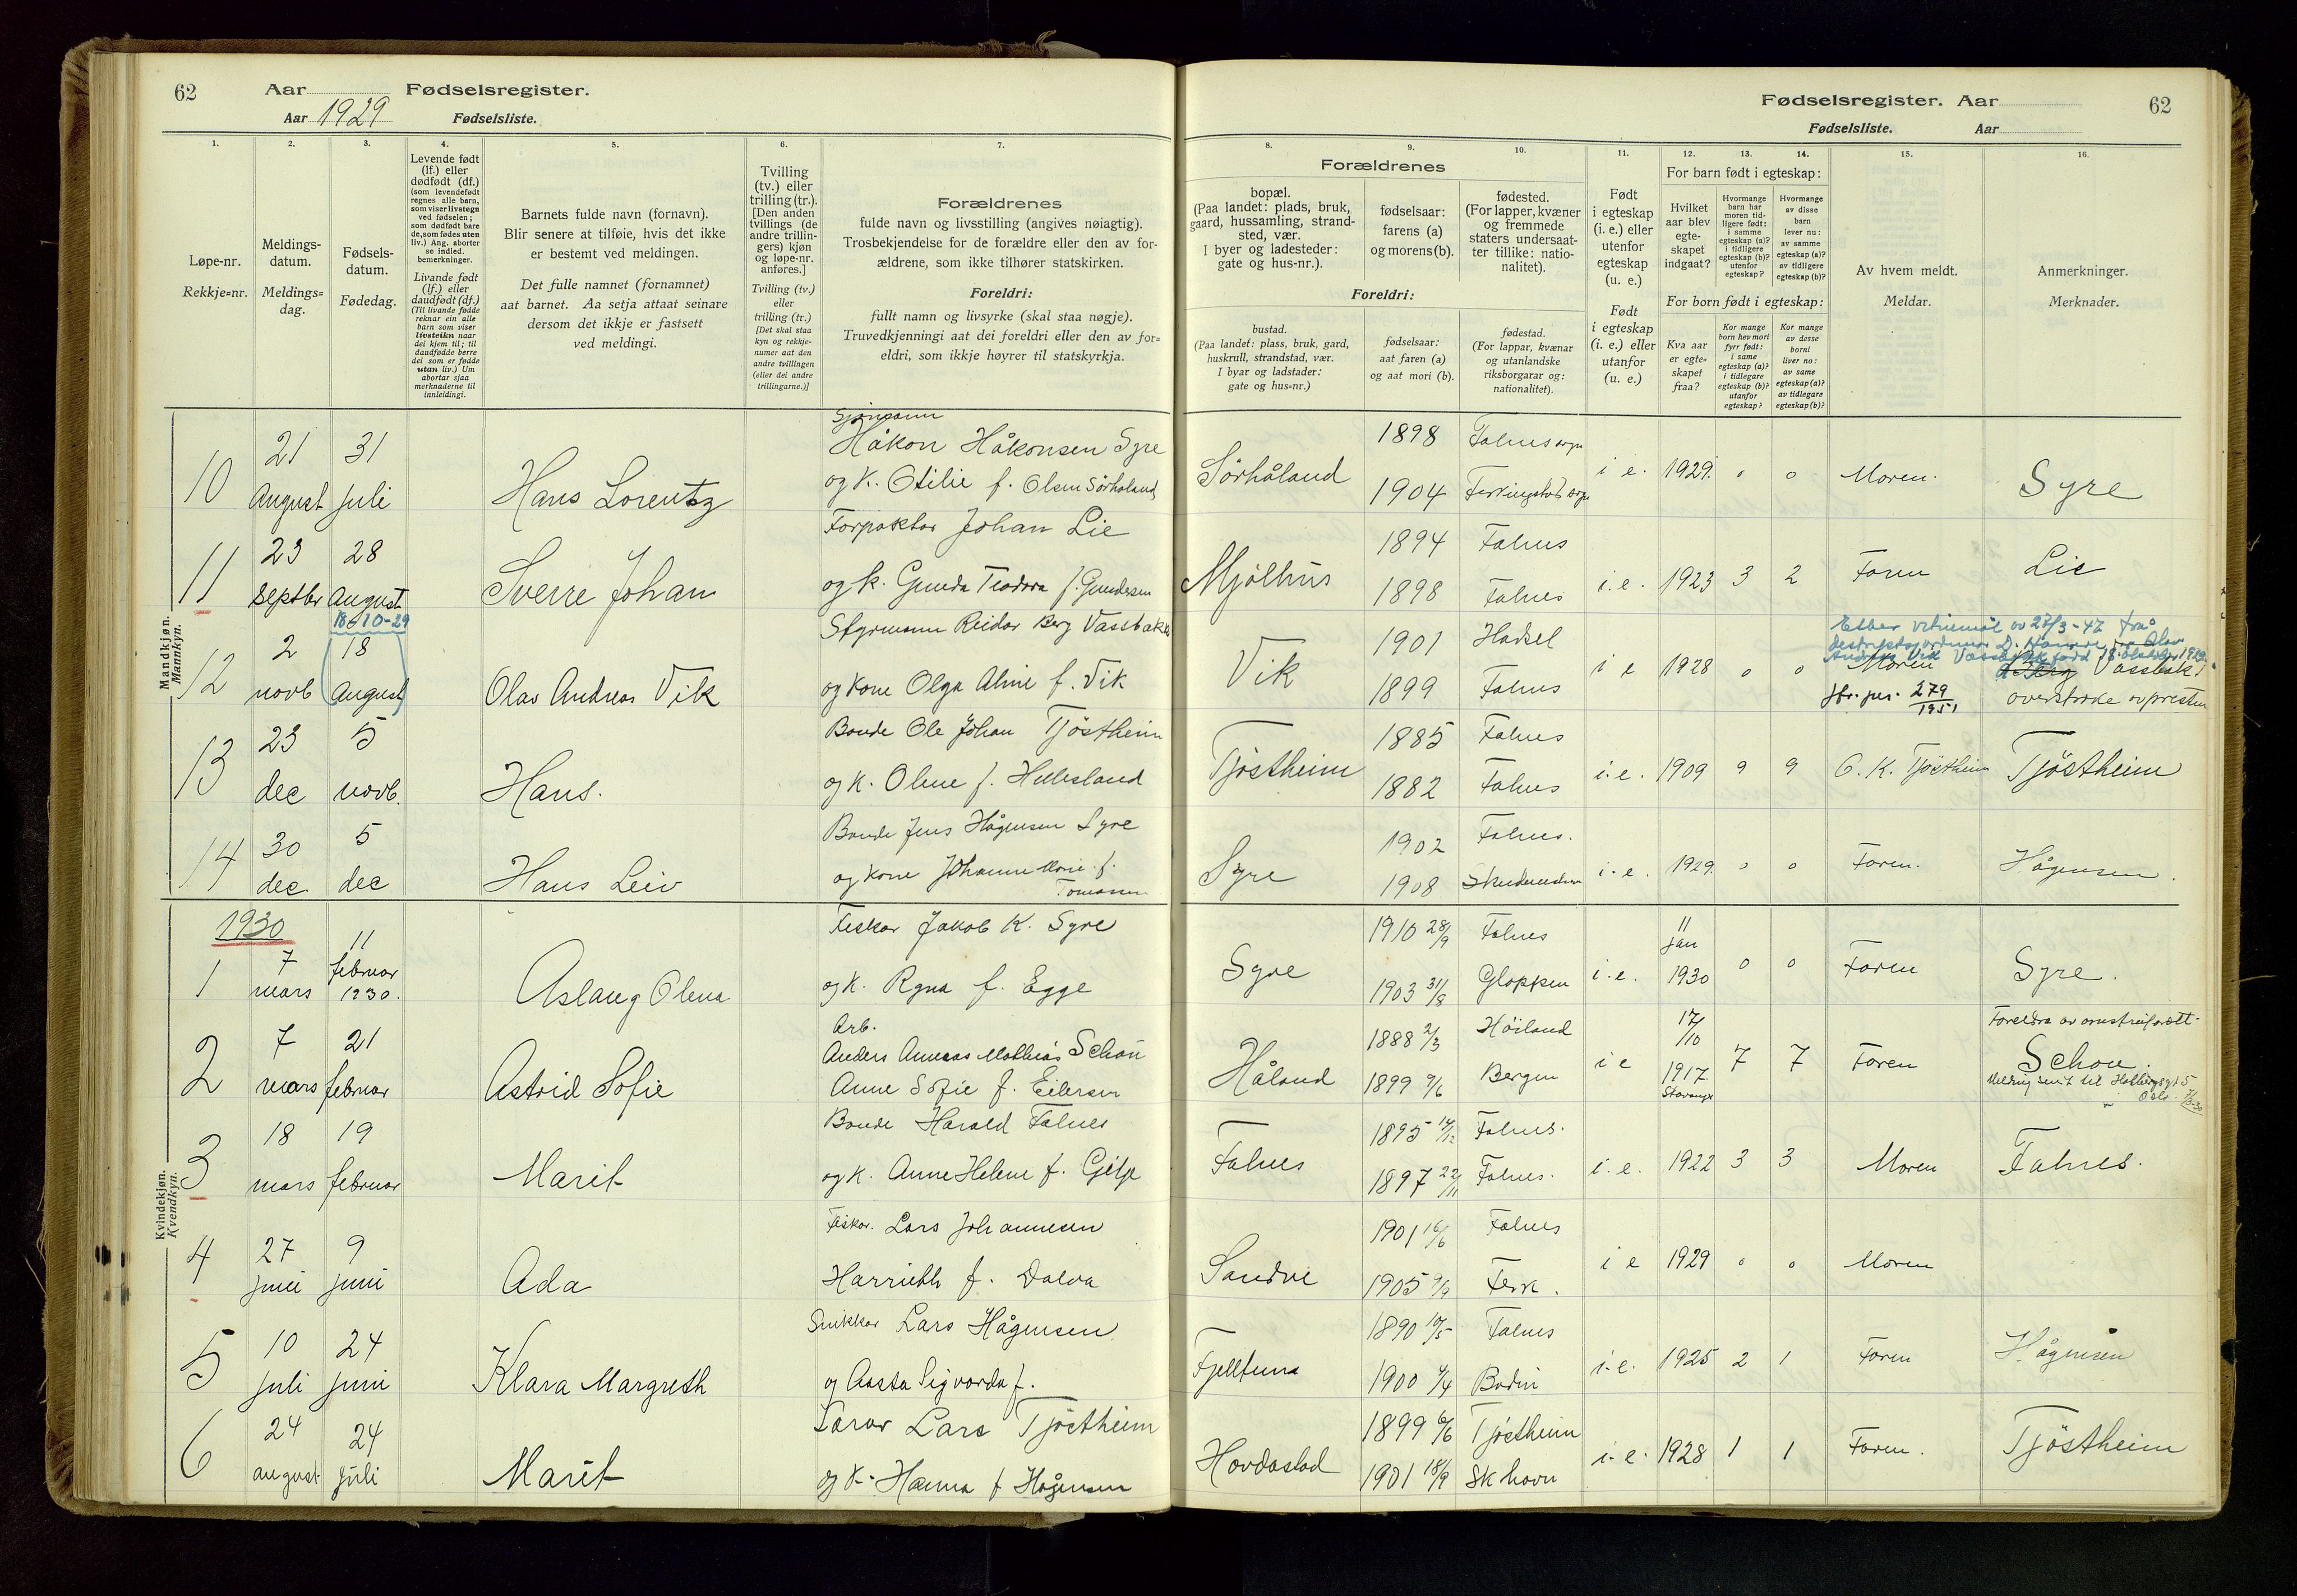 62
Aar
Fødselsregister.
Aar 1929
Fødselsliste.
1.
Løpe-nr.
Rekkje-nr.
2.
Meldings-
datum.
Meldings-
dag.
3.
Fødsels-
datum.
Fødedag.
4.
Levende født
(lf.) eller
dødfødt (df.)
(som levendefødt
regnes alle barn,
som viser livstegn
ved fødselen;
som dødfødt bare
de, som fødes uten
liv.) Ang. aborter
se indled.
bemerkninger.
Livande født
(lf.) eller
daudfødt (df.)
(Til livande fødde
reknar ein alle
barn som viser
livsteikn naar
dei kjem til; til
daudfødde berre
dei som er fødde
utan liv.) Um
abortar sjaa
merknaderne til
innleidingi.
5.
Barnets fulde navn (fornavn).
Blir senere at tilføie, hvis det ikke
er bestemt ved meldingen.
Det fulle namnet (fornamnet)
aat barnet. Aa setja attaat seinare
dersom det ikkje er fastsett
ved meldingi.
6.
Tvilling
(tv.) eller
trilling (tr.).
[Den anden
tvillings (de
andre trillin-
gers) kjøn
og løpe-nr.
anføres.]
Tvilling (tv.)
eller
trilling (tr.)
[Det skal staa
kyn og rekkje-
numer aat den
andre tvillingen
(eller dei andre
trillingarne.)]
7.
Forældrenes
fulde navn og livsstilling (angives nøiagtig).
Trosbekjendelse for de forældre eller den av for-
ældrene, som ikke tilhører statskirken.
Foreldri:
fullt namn og livsyrke (skal staa nøgje).
Truvedkjenningi aat dei foreldri eller den av for-
eldri, som ikkje høyrer til statskyrkja.
Fødselsregister. Aar
62
Fødselsliste.
Aar
8.
Forældrenes
bopæl.
(Paa landet: plads, bruk,
gaard, hussamling, strand-
sted, vær.
I byer og ladesteder:
gate og hus-nr.).
Foreldri:
bustad.
(Paa landet: plass, bruk, gard,
huskrull, strandstad, vær.
I byar og ladstader:
gate og hus-nr.)
9.
fødselsaar:
farens (a)
og morens (b).
fødselsaar:
aat faren (a)
og aat mori (b).
10.
fødested.
(For lapper, kvæner
og fremmede
staters undersaat-
ter tillike: natio-
nalitet).
fødestad.
(For lappar, kvænar
og utanlandske
riksborgarar og:
nationalitet).
11.
Født
i egteskap
(i. e.) eller
utenfor
egteskap
(u. e.)
Født
i egteskap
(i. e.) eller
utanfor
(u. e.)
12.
13.
14.
For barn født i egteskap:
Hvilket
aar blev
egte-
skapet
indgaat?
Hvormange
barn har
moren tid-
ligere født:
i samme
egteskap (a)?
i tidligere
egteskap (b)?
utenfor
egteskap?
Hvormange
av disse
barn
lever nu:
av samme
egteskap (a)?
av tidligere
egteskap (b)?
For born født i egteskap:
Kva aar
er egte-
skapet
fraa?
Kor mange
born hev mori
fyrr født:
i same
egteskap (a)?
i tidlegare
egteskap (b)?
utanfor
egteskap?
Kor mange
av desse
borni
liver no:
av same
egteskap (a)?
av tidlegare
egteskap (b)?
15.
Av hvem meldt.
Meldar.
16.
Anmerkninger.
Merknader.
Mandkjøn.
Mannkyn.
10
21 August
31 juli
Hans Lorentz
Sjömann
Håkon Håkonsen Syre
og K. Otilie f. Olsen Sörhaland
Sörhåland
1898
1904
Falnes sogn
i e.
1929.
0
0
Moren.
Syre
11
23 Septbr
28 August
Sverre Johan
Forpaktar Johan Lie
og K. Gunda Teodora f. Gundersen
Mjölhus
1894
1898
Falnes
Falnes
i. e.
1923
3
2
Faren
Lie
12
2 novb
18-10-29
18 August
Olav Andreas Vik
Styrmann Reidar Berg Vassbakk
og kone Olga Aline f. Vik
Vik
1901
1899
Hadsel
Falnes
i e
1928
0
0
Moren
jfr. jnr. 279/1951
Vassbakk
13
23 dec
5 novb.
Hans.
Bonde Ole Johan Tjöstheim
og K. Olene f. Hillesland
Tjöstheim
1885
1882
Falnes
Falnes
i. e.
1909
9
9
O. K. Tjöstheim
Tjöstheim
14
30 dec
5 dec
Hans Leiv
Bonde Jens Hågensen Syre
og kone Johanne Marie f.
Tomassen
Syre
1902
1908
Falnes.
i. e.
1929.
0
0
Faren.
Hågensen.
Kvindekjøn.
Kvendkyn.
1930
1
7 mars
11 februar 1930.
Aslaug Olena
Fiskar Jakob K. Syre
og K. Ragna f. Egge
Syre
1910 28/9
1903 31/8
Falnes
Gloppen
i. e.
11 jan 1930
0
0
Faren
Syre.
2
7 mars
21 februar
Astrid Sofie
Arb.
Anders Anneas Mathias Schou
Anne Sofie f. Eilersen
Håland
1888 2/3
1899 9/6
Höiland
Bergen
i e
17/10 1917 Stavanger
7
7
Faren
Schou.
3
18 mars
19 februar
Marit
Bonde Harald Falnes
og K. Anne Helene f. Gjilje
Falnes
1895 14/12
1897 22/11
Falnes.
Falnes.
i. e.
1922
3
3
Moren
Falnes.
4
27 juni
9 juni
Ada
Fiskar. Lars Johannesen
Harrieth f. Dalva
Sandve
1901 16/6
1905 9/9
Falnes
Ferk.
i e
1929
0
0
Moren
5
10 juli
24 juni
Klara Margreth
Snikkar Lars Hågensen
og Aasta Sigvarda f.
Fjelltuna
1890 10/5
1900 4/4
Falnes
Bodin
i. e.
1925
2
1
Faren
Hågensen
6
24 august
24 juli
Marit
Lærar Lars Tjöstheim
og K. Hanna f Hågensen
Hovdastad
1899 6/6
1901 18/9
Tjöstheim
Sk havn
i. e.
1928
1
1
Faren.
Tjöstheim